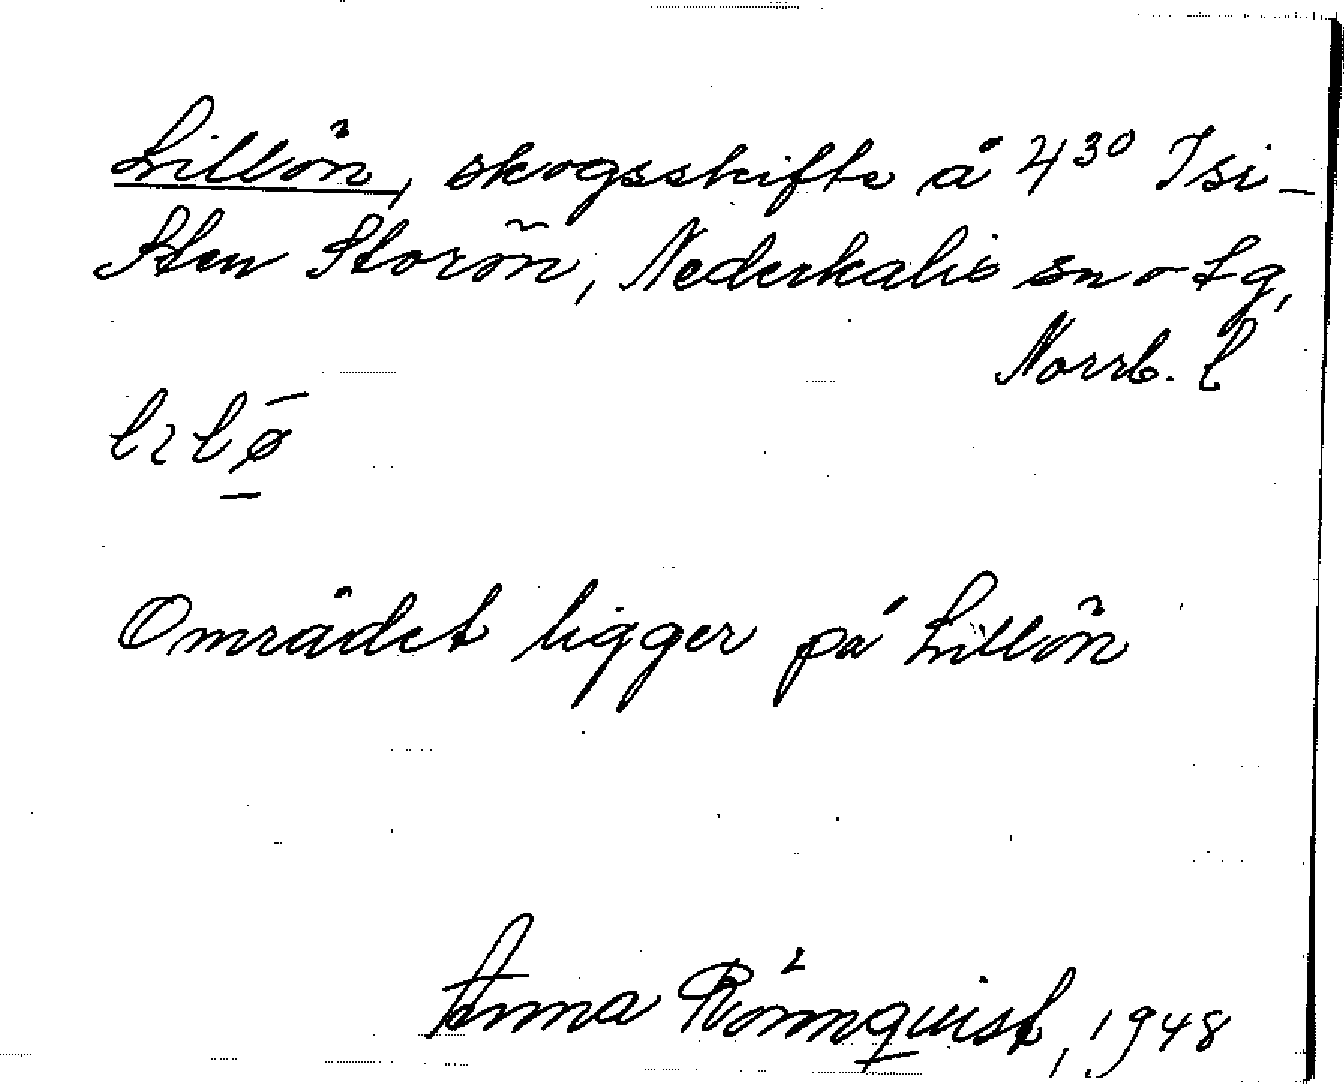 Lillön, skogsskifte å 4³⁰ Isi-
sten Storön, Nederkalix sn o tg,
Norrb. l
Området ligger på Lillön
Anna Rönnqvist, 1948